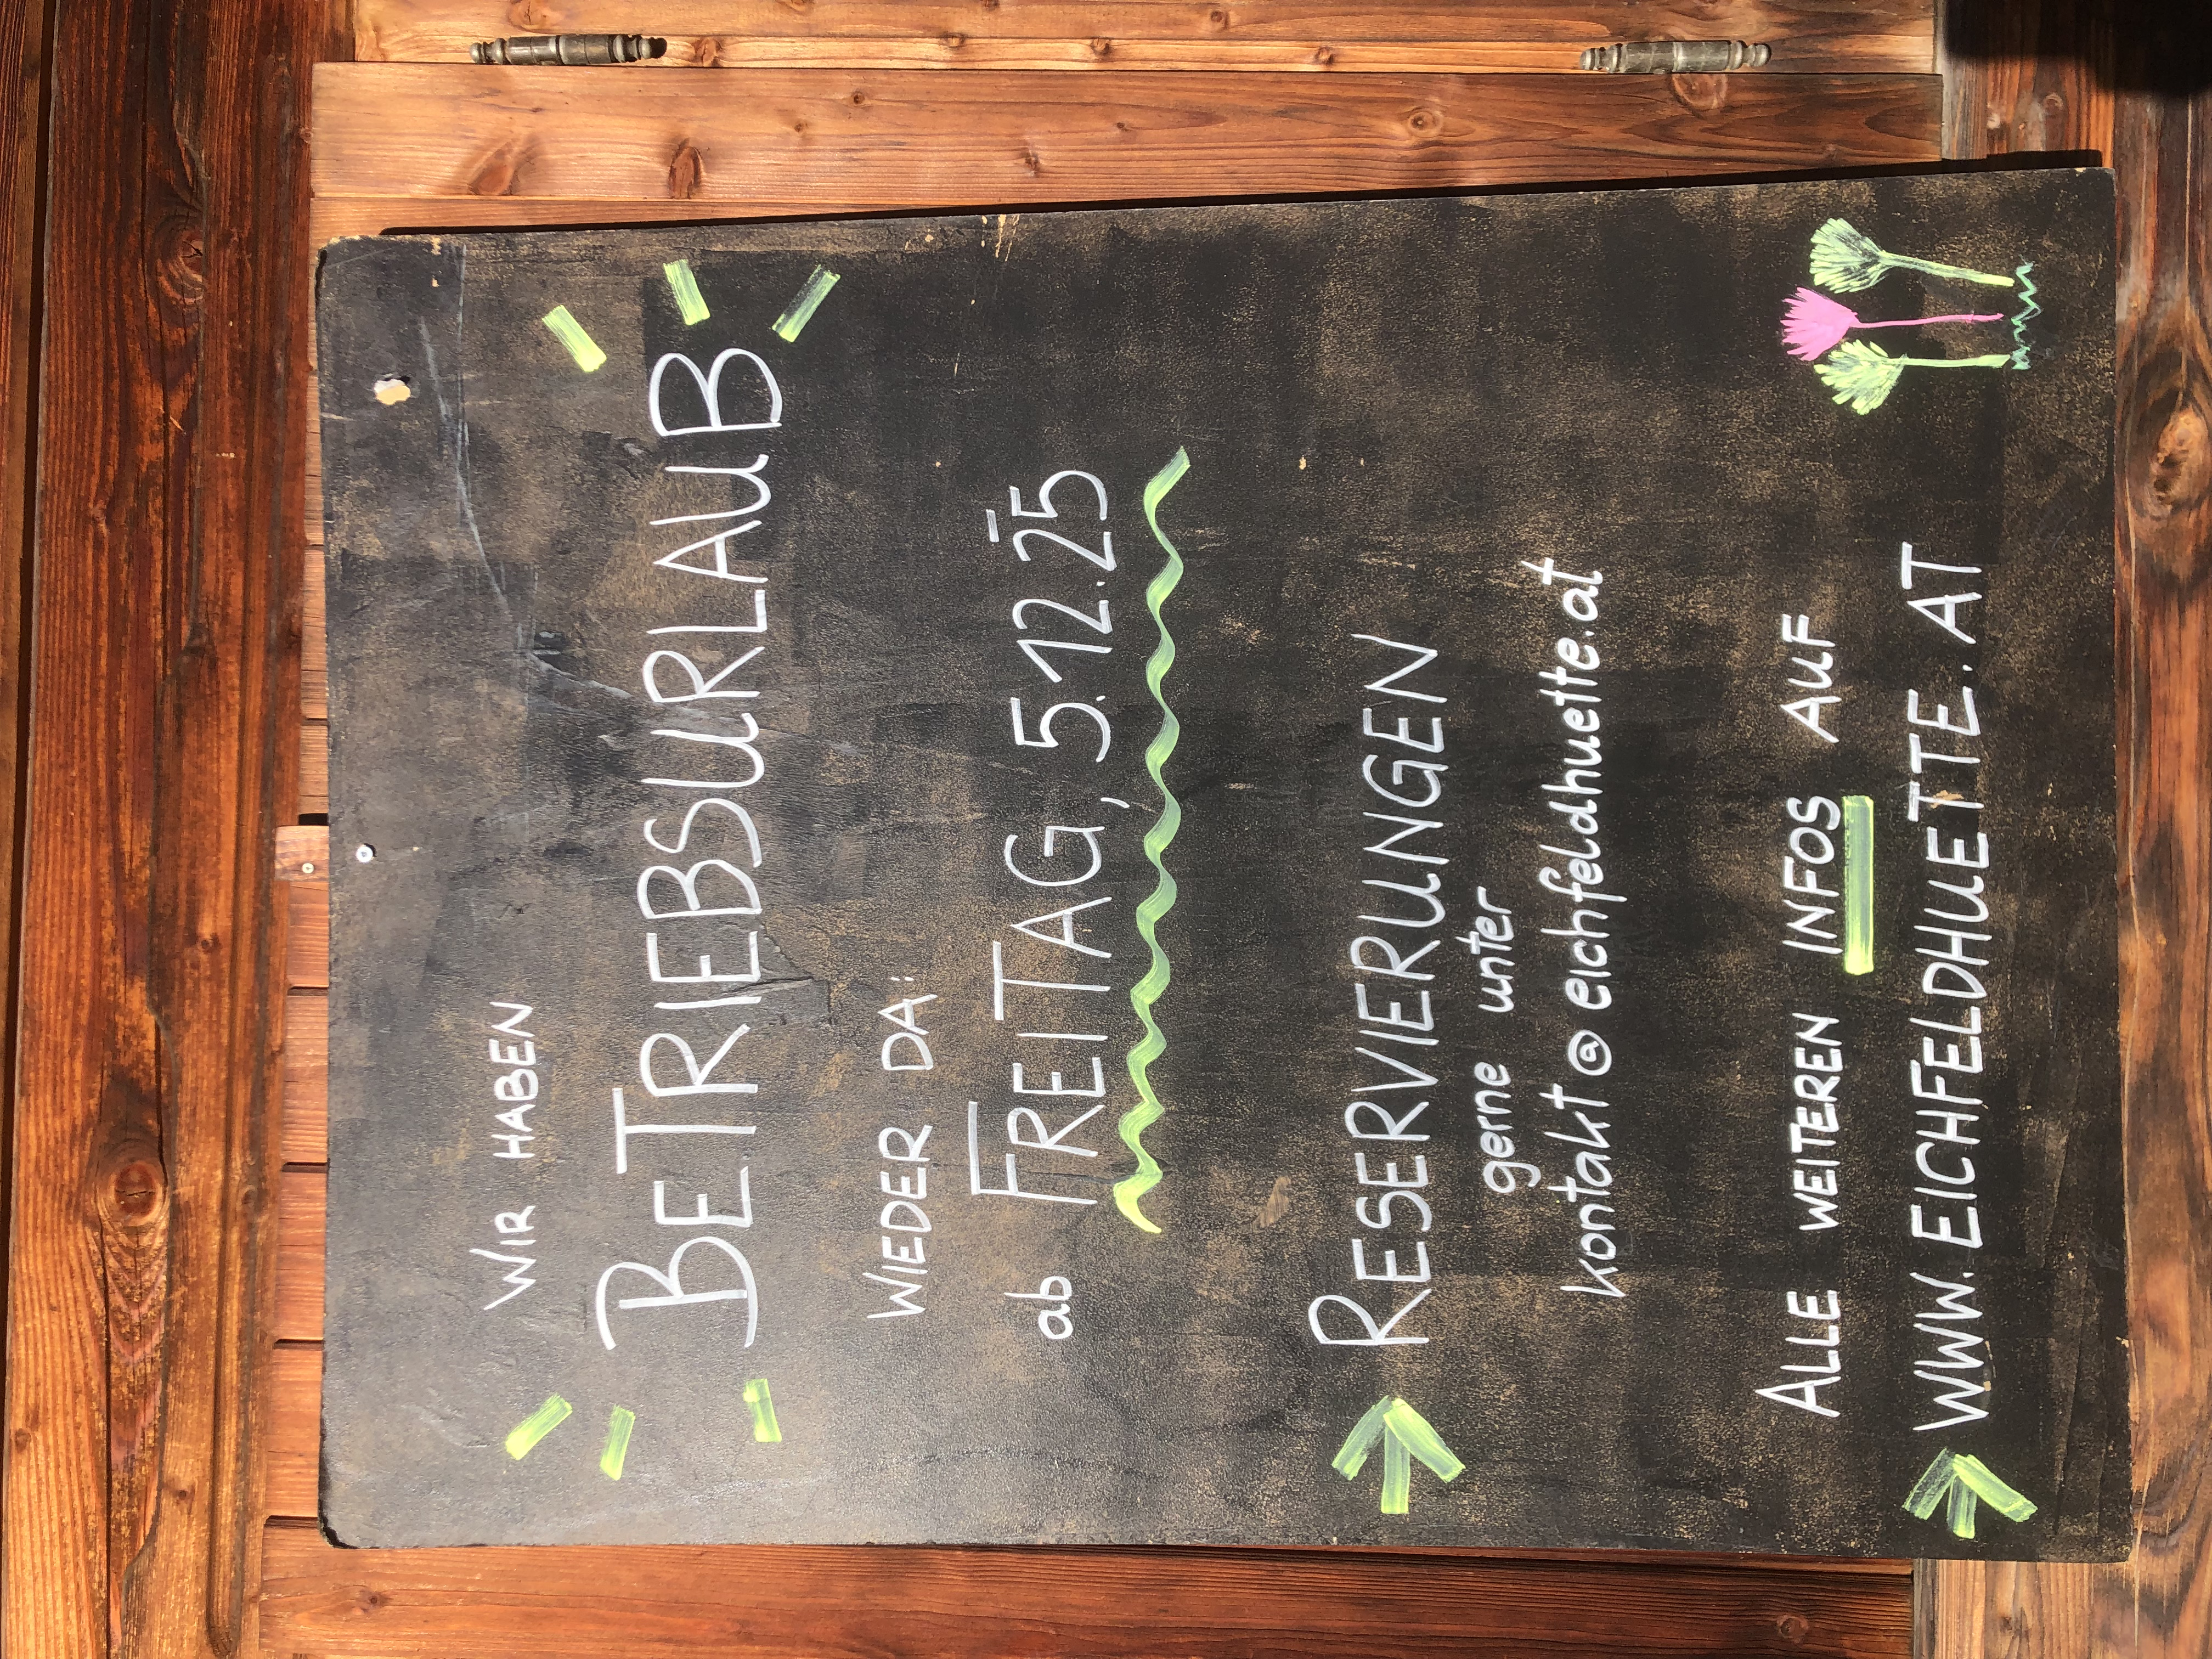 WIR HABEN
BETRIEBSURLAUB
WIEDER DA:
ab FREITAG, 5.12.25
RESERVIERUNGEN
gerne unter
kontakt@eichfeldhuette.at
ALLE WEITEREN INFOS AUF
WWW.EICHFELDHUETTE.AT